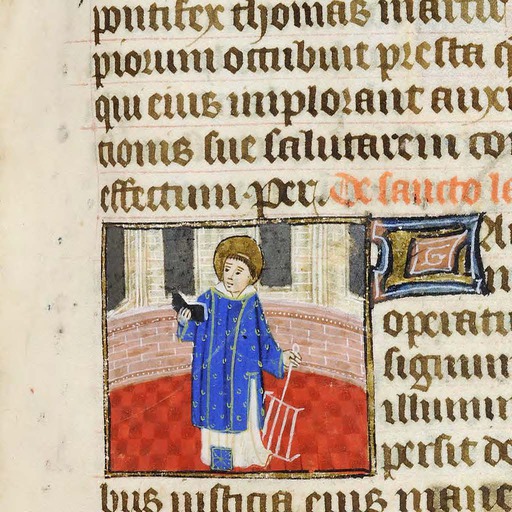 pontifex thomas martir
piorum occubuit presta q
qui eius implorant auxi
tionis sue salutarem co
effectum. per. De sancto le
operatu
signum
illumi
persit de
bus iusticia eius mane